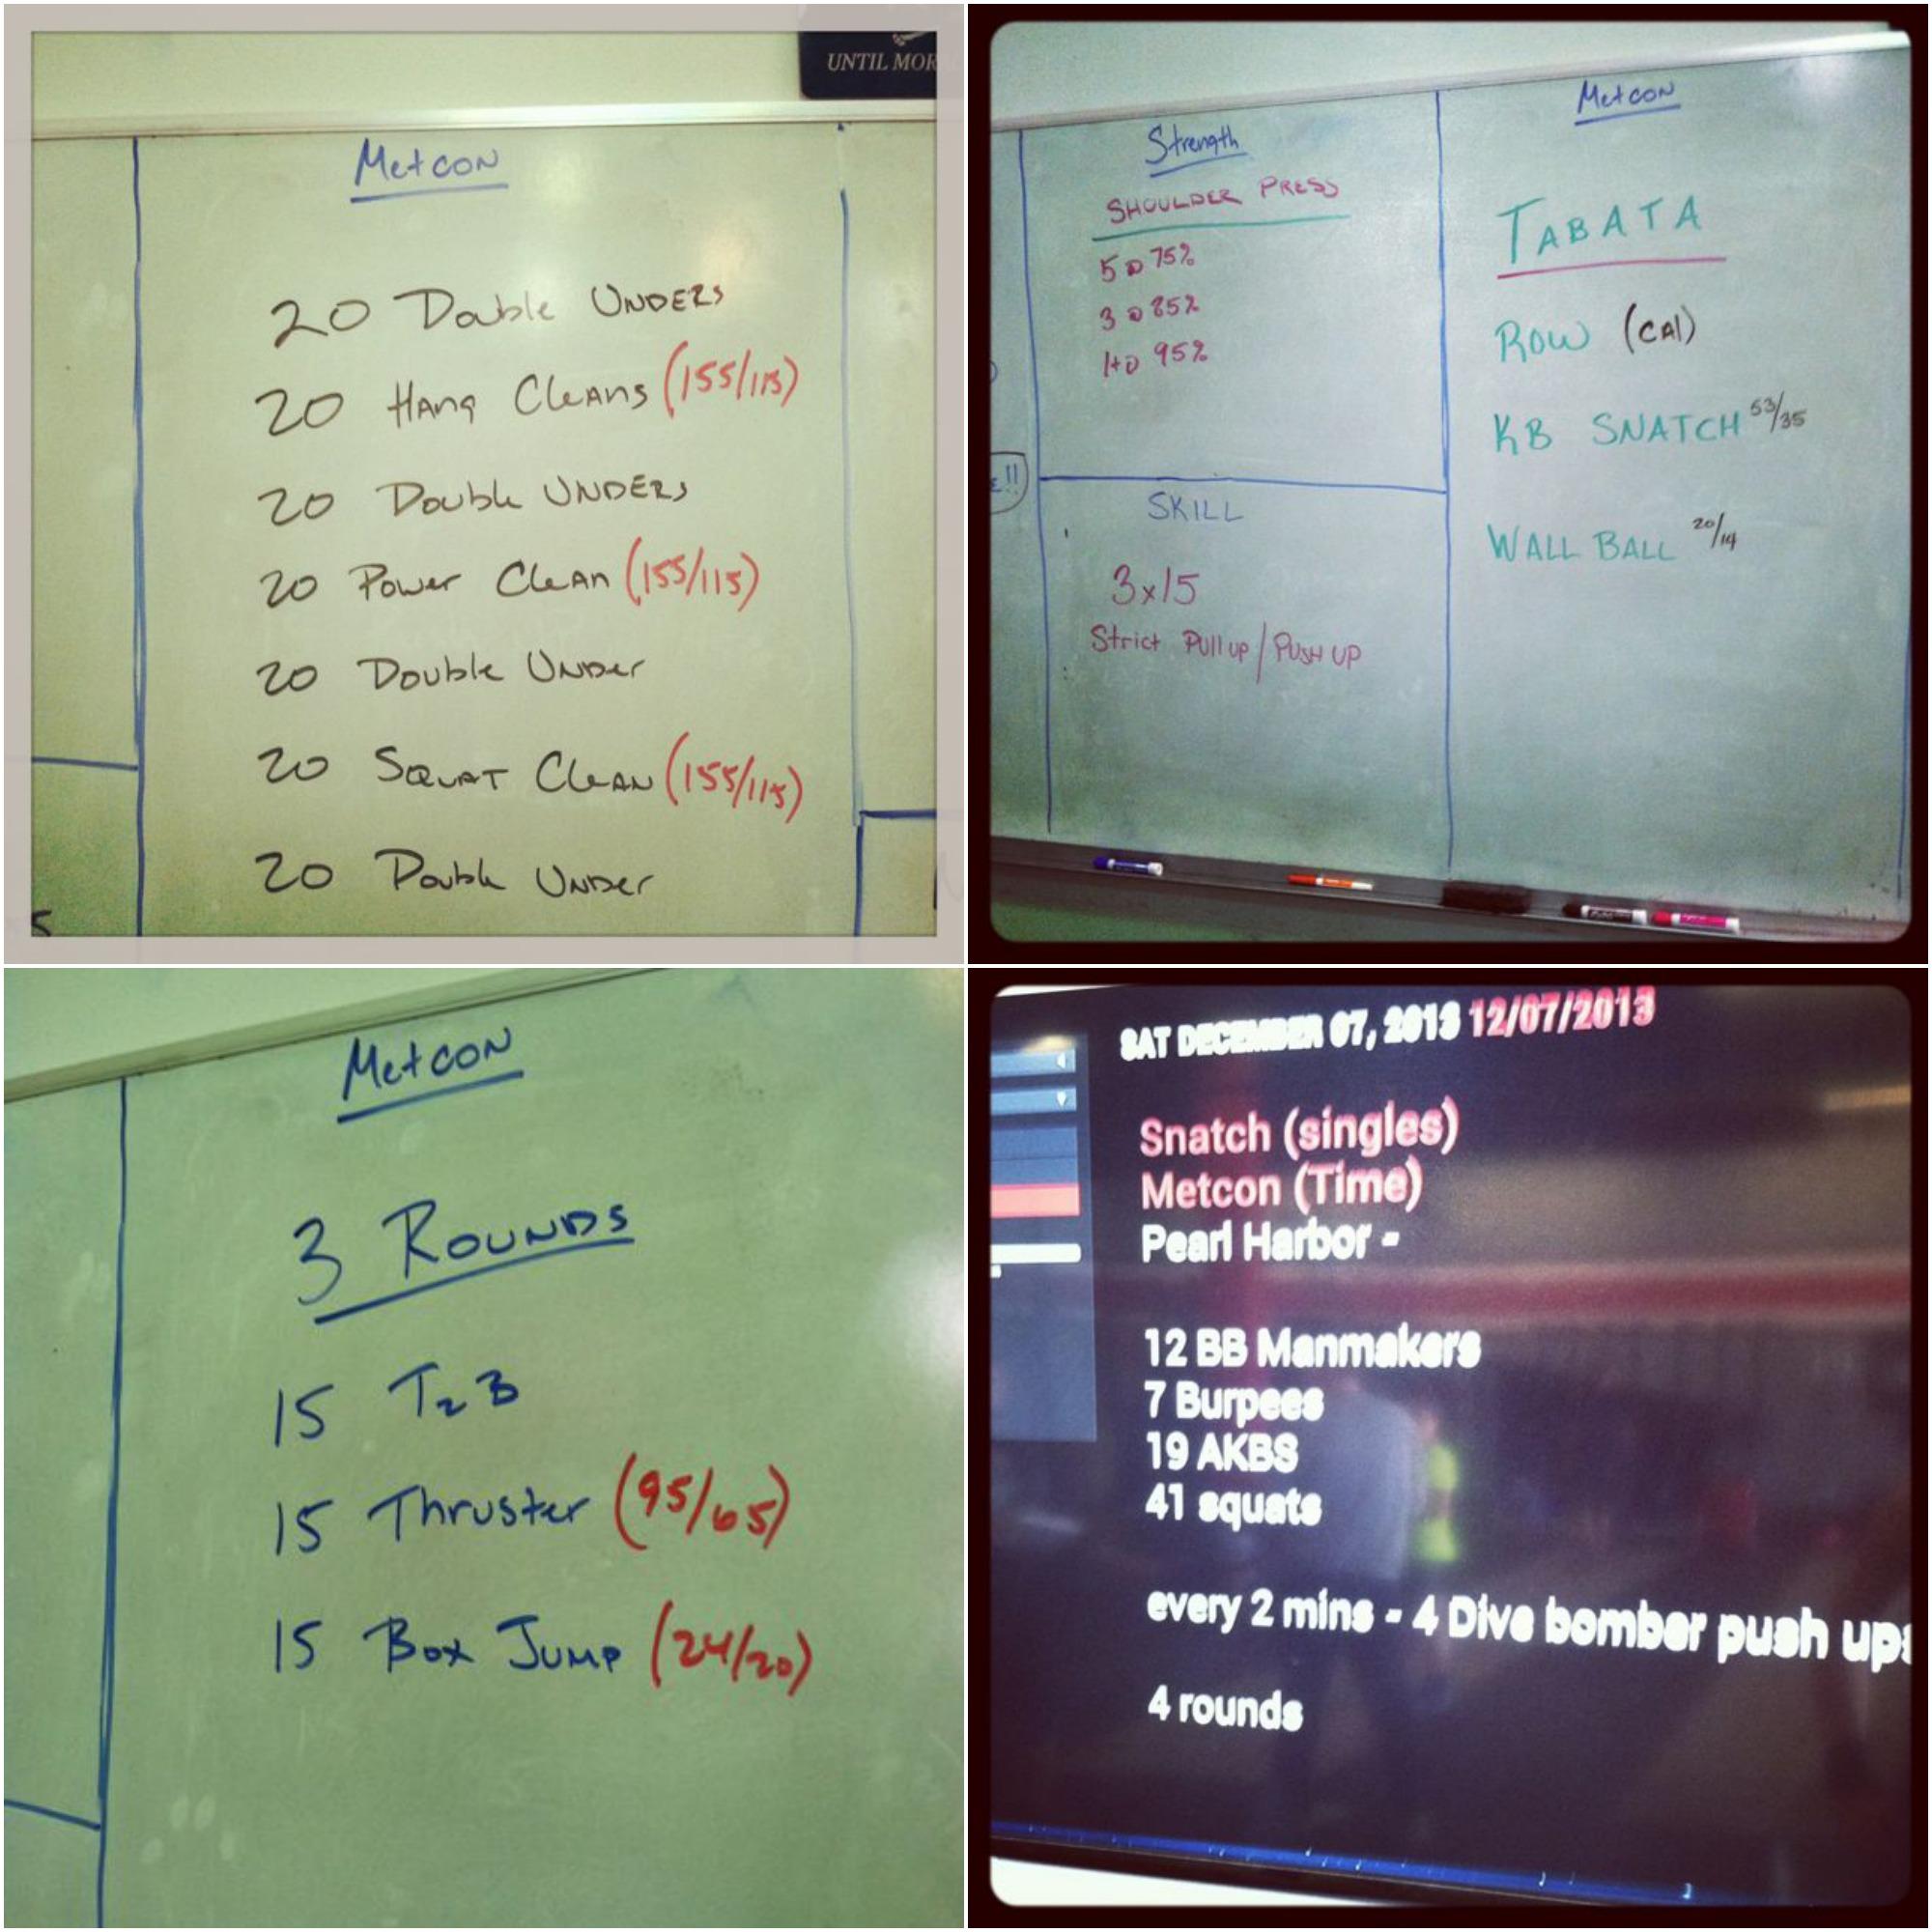 UNTIL MOR
Metcon
20 Double UNDERS
20 Hang Cleans (155/115)
20 Double UNDERS
20 Power Clean (155/115)
20 Double Under
20 Squat Clean (155/115)
20 Double Under
5
Strength
SHOULDER PRESS
5 @ 75%
3 @ 85%
1+ @ 95%
SKILL
3x15
Strict Pull up / Push up
Metcon
TABATA
ROW (CAl)
KB SNATCH 53/35
WALL BALL 20/14
Metcon
3 ROUNDS
15 T2B
15 Thruster (95/65)
15 Box Jump (24/20)
SAT DECEMBER 07, 2013 12/07/2013
Snatch (singles)
Metcon (Time)
Pearl Harbor -
12 BB Manmakers
7 Burpees
19 AKBS
41 squats
every 2 mins - 4 Dive bomber push ups
4 rounds